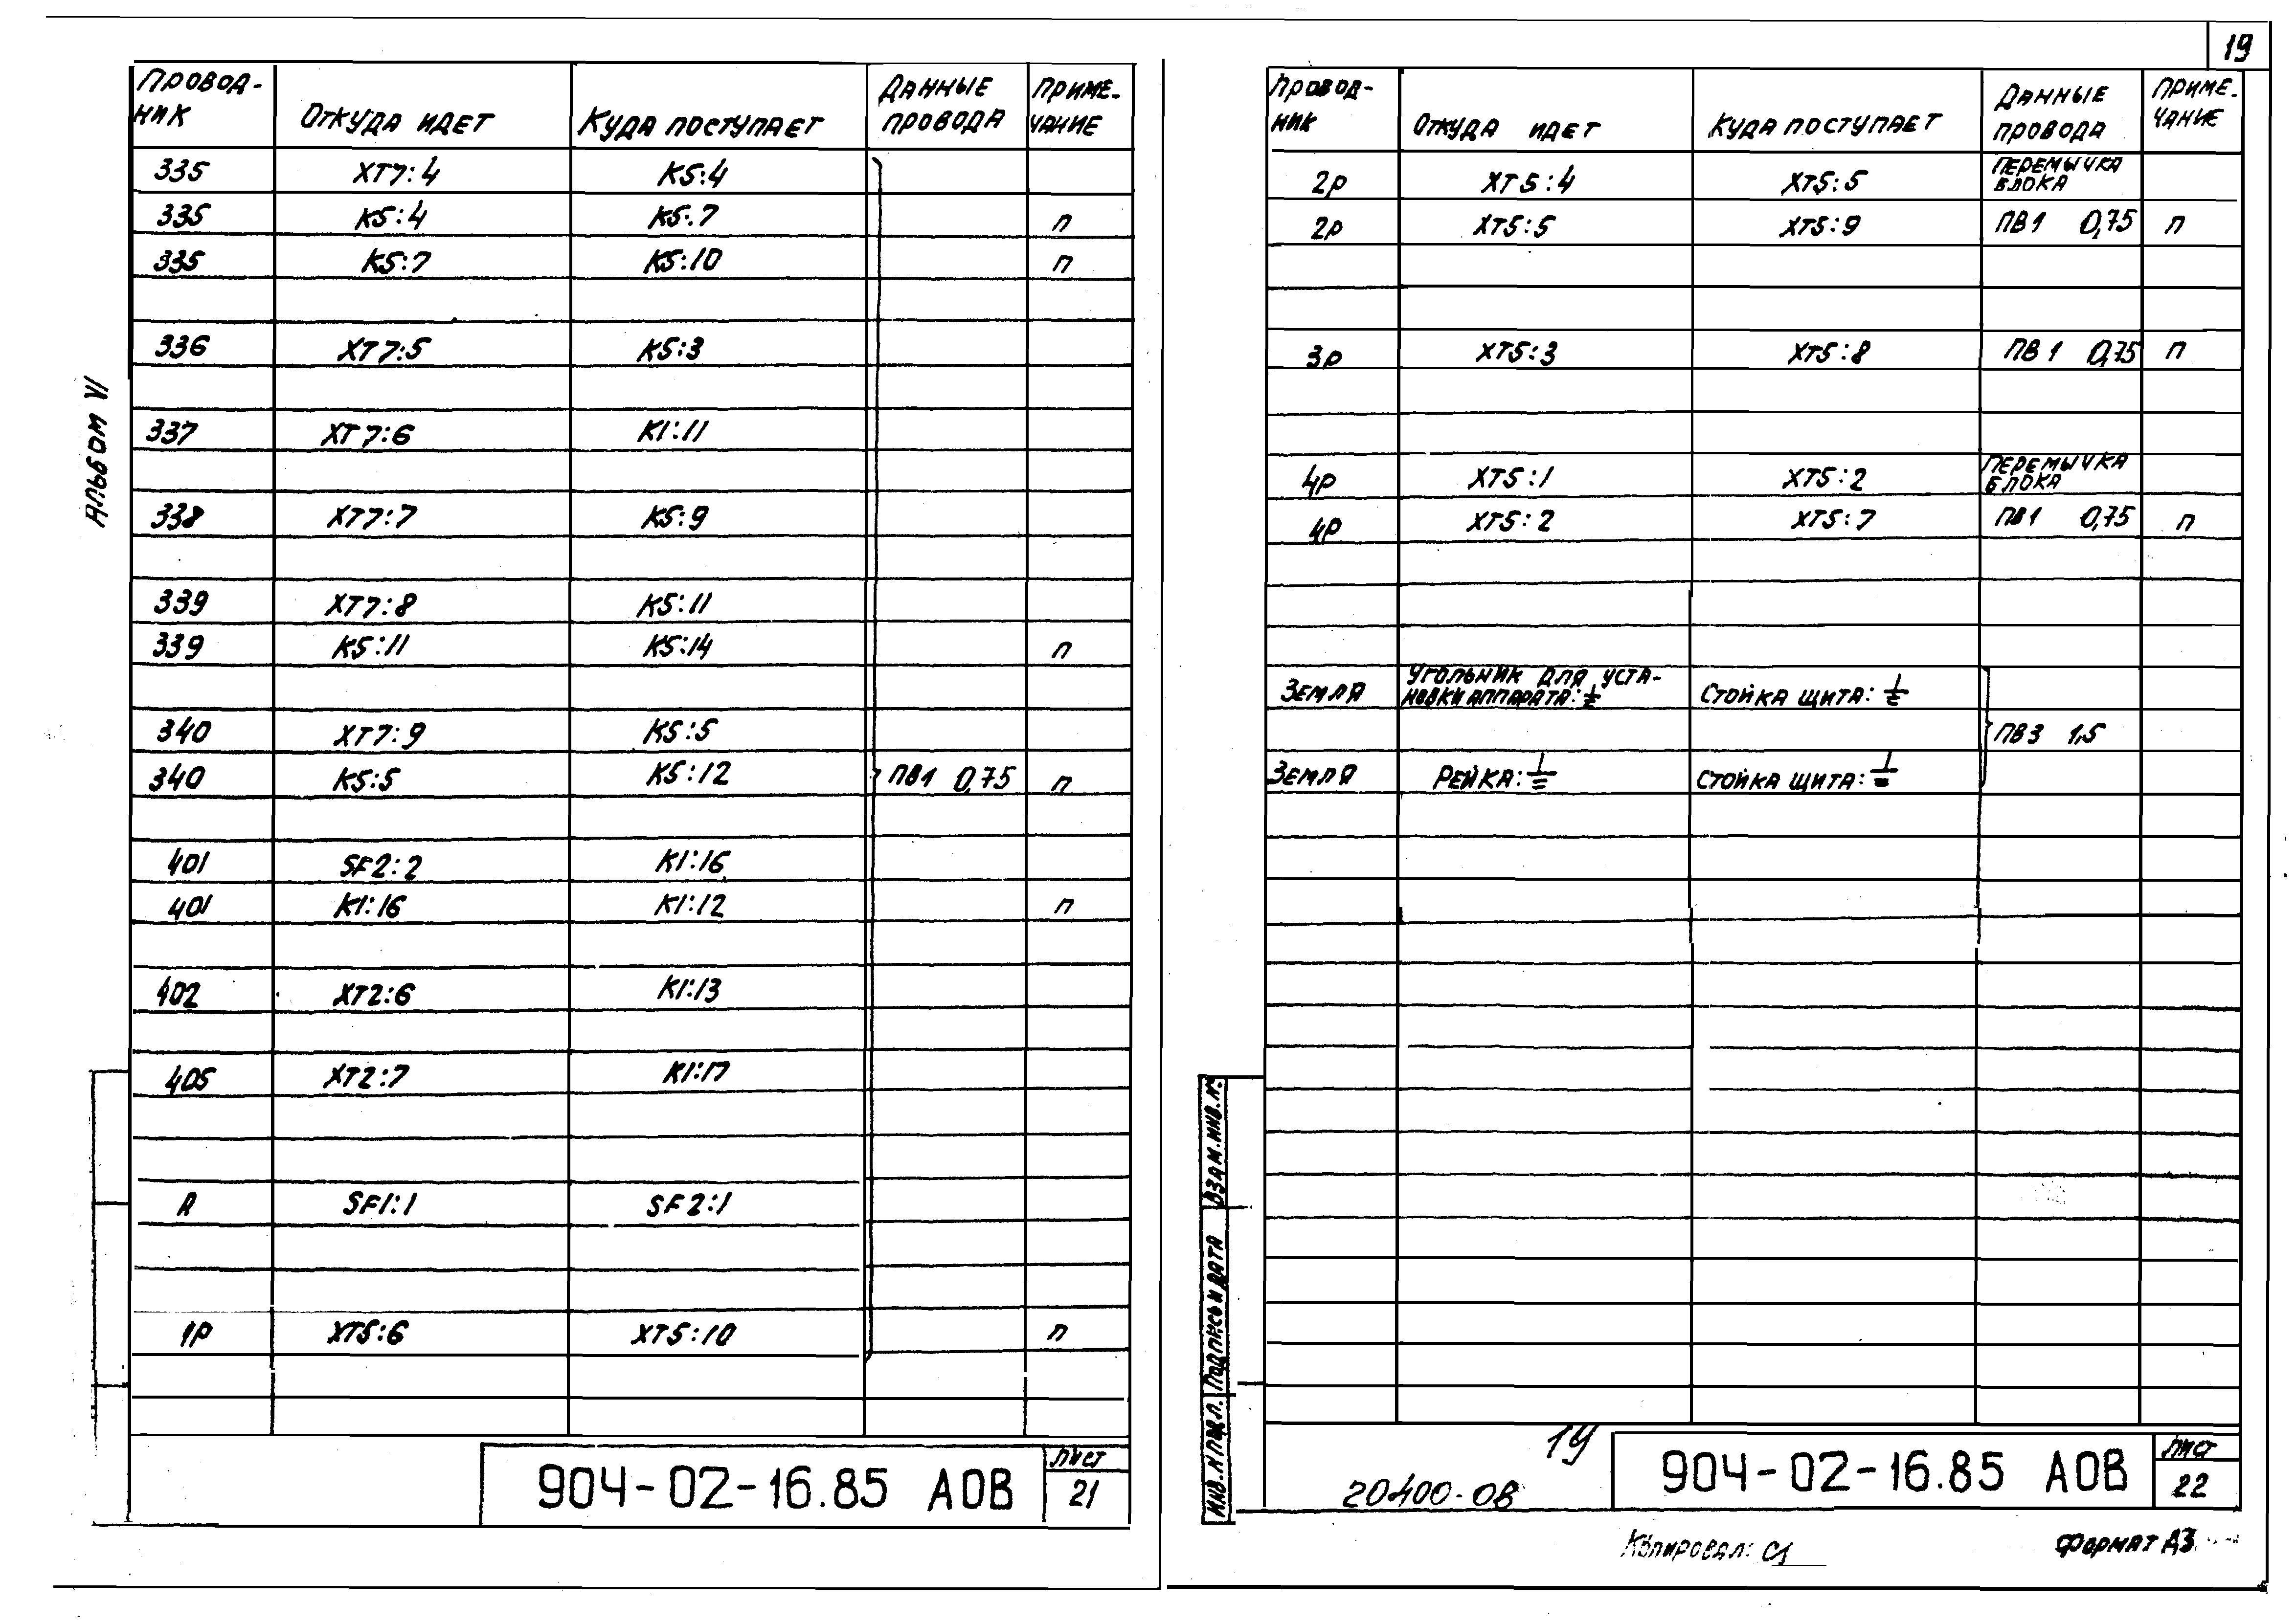 19
Альбом VI
Провод-ник Откуда идет Куда поступает Данные провода Приме-чание
335 XT7:4 K5:4
335 K5:4 K5:7 п
335 K5:7 K5:10 п
336 XT7:5 K5:3
337 XT7:6 K1:11
338 XT7:7 K5:9
339 XT7:8 K5:11
339 K5:11 K5:14 п
340 XT7:9 K5:5
340 K5:5 K5:12 ПВ1 0,75 п
401 SF2:2 K1:16
401 K1:16 K1:12 п
402 XT2:6 K1:13
405 XT2:7 K1:17
A SF1:1 SF2:1
1P XT5:6 XT5:10 п
904-02-16.85 АОВ
Лист
21
Провод-ник Откуда идет Куда поступает Данные провода Приме-чание
2P XT5:4 XT5:5 Перемычка блока
2P XT5:5 XT5:9 ПВ1 0,75 п
3P XT5:3 XT5:8 ПВ1 0,75 п
4P XT5:1 XT5:2 Перемычка блока
4P XT5:2 XT5:7 ПВ1 0,75 п
Земля Угольник для уста-новки аппарата: ⏚ Стойка щита: ⏚
ПВ3 1,5
Земля Рейка: ⏚ Стойка щита: ⏚
Взам.инв.N
Подпись и дата
Инв.N подл.
19
20400-08
904-02-16.85 АОВ
Лист
22
Копировал:
Формат А3